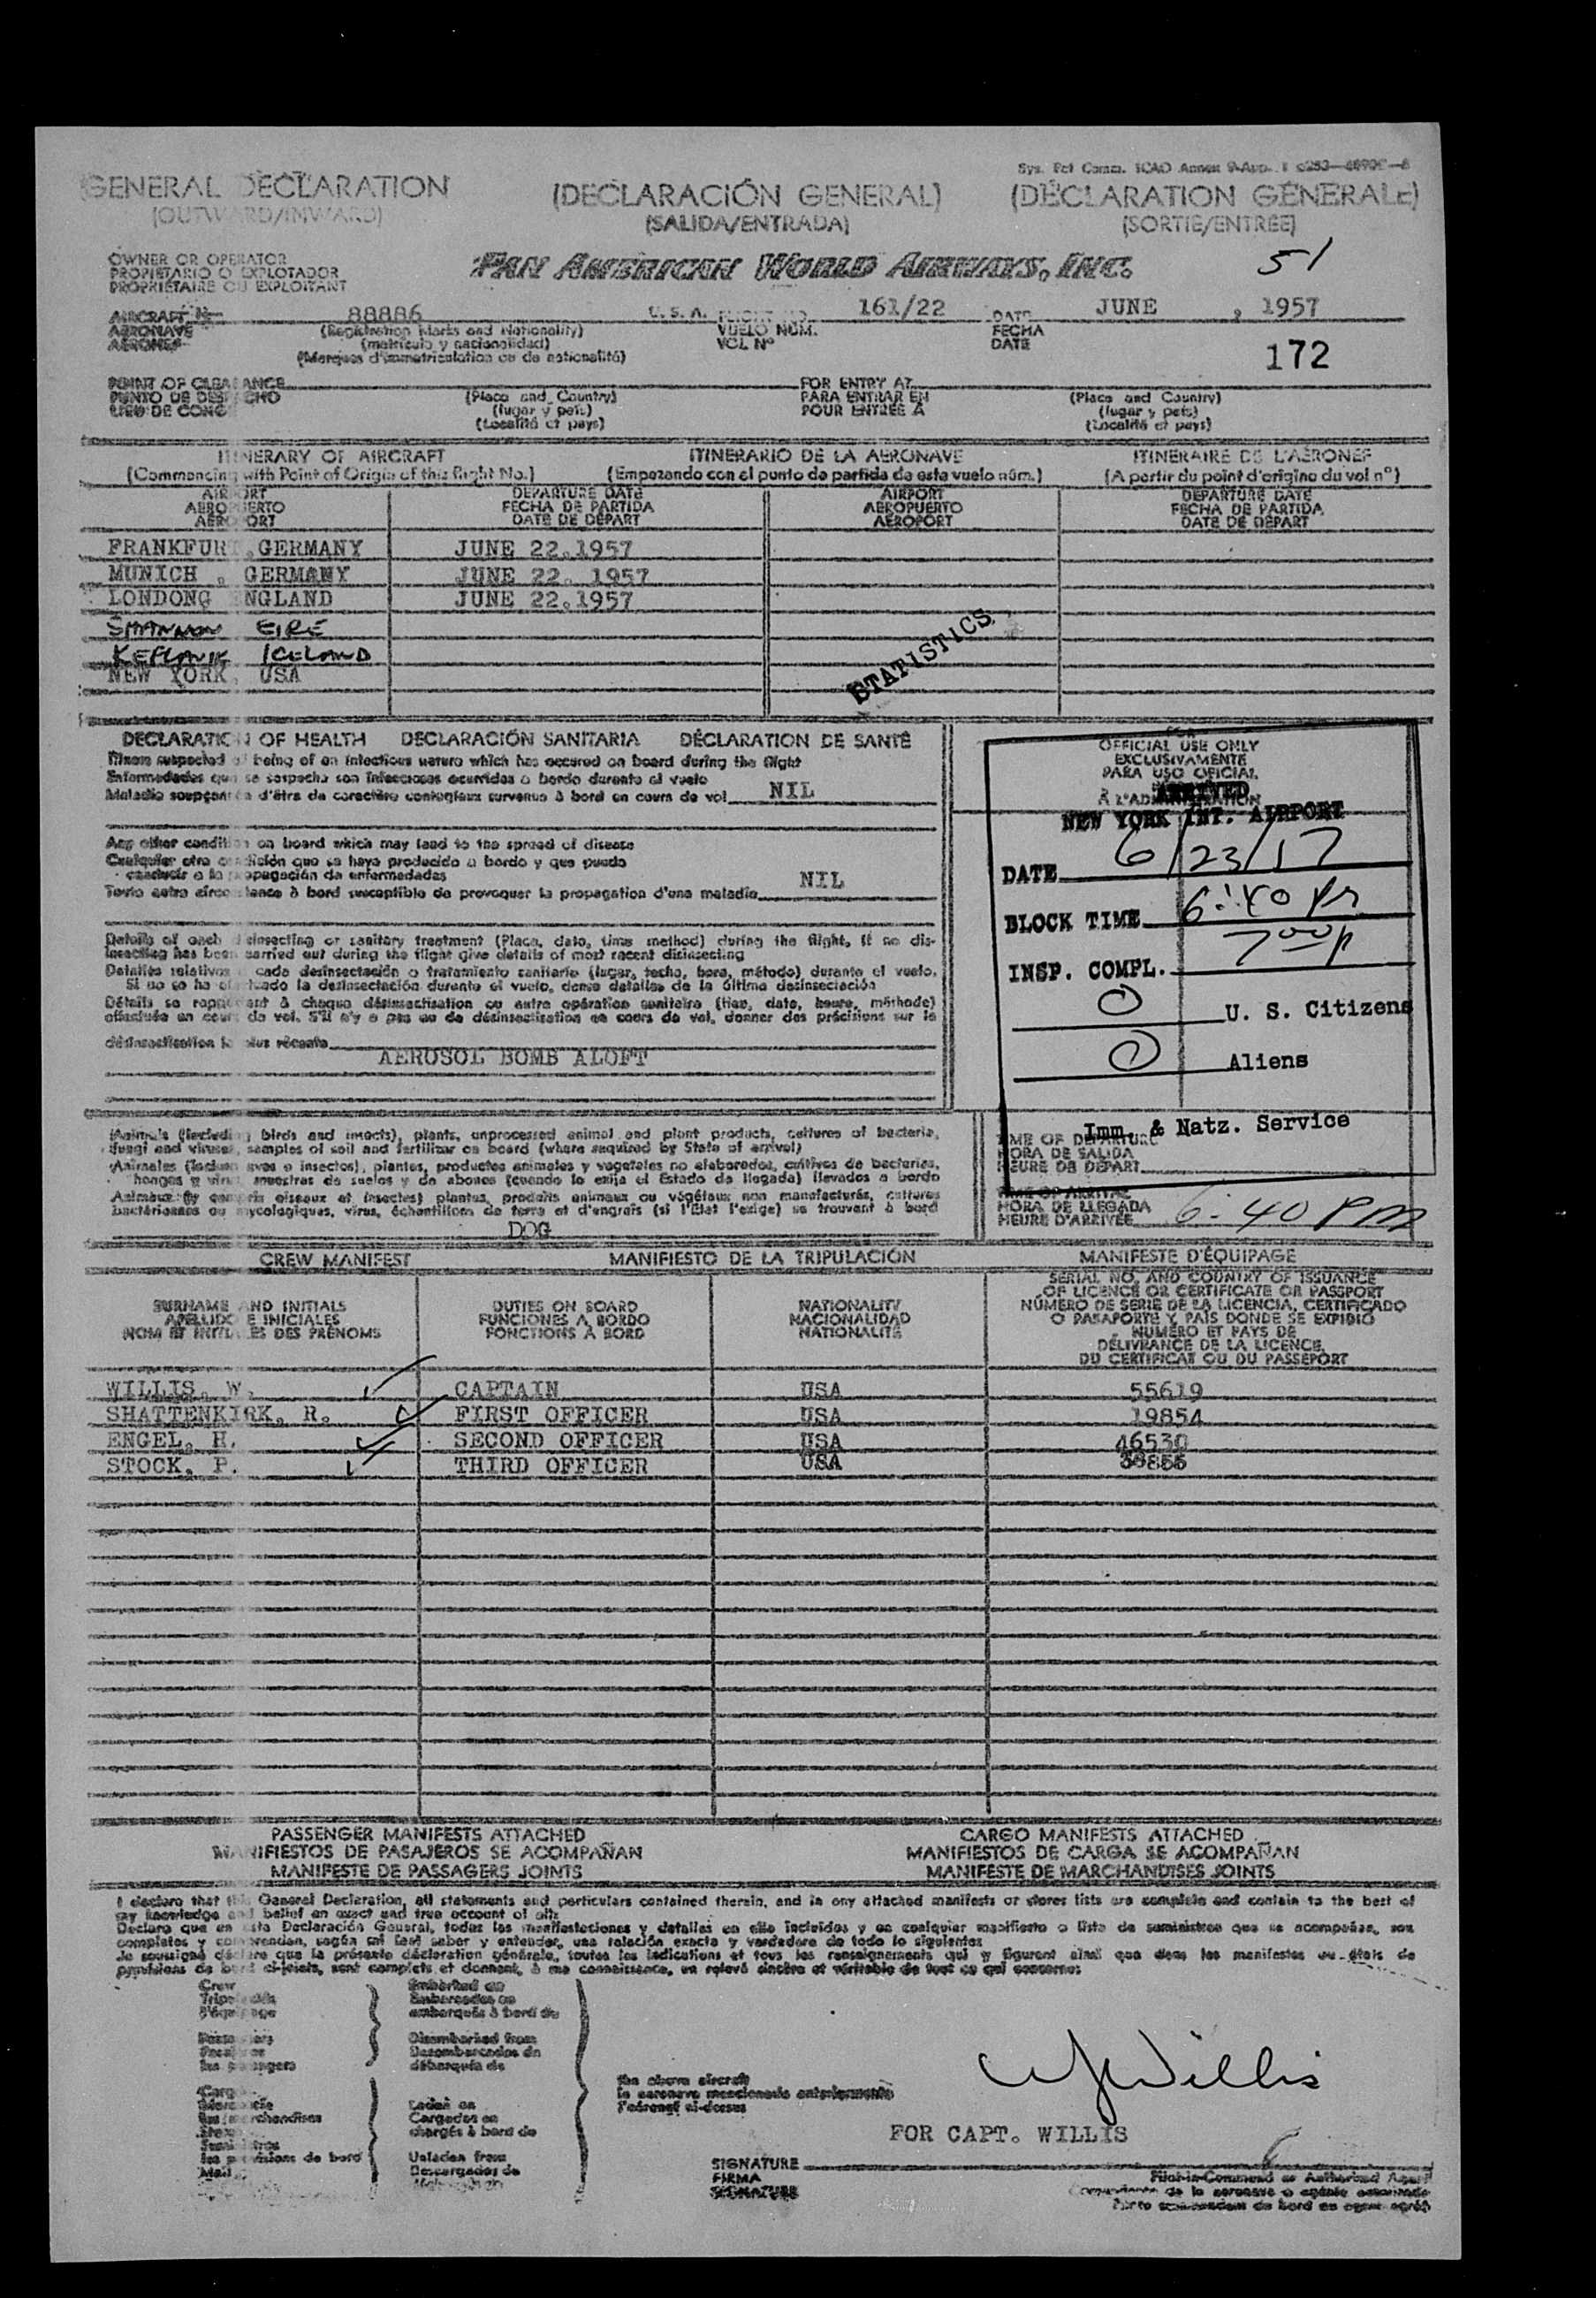 Sys. Rct Comm. ICAO Annex 9-App. 1
GENERAL DECLARATION (DECLARACIÓN GENERAL) (DÉCLARATION GÉNÉRALE)
(OUTWARD/INWARD) (SALIDA/ENTRADA) (SORTIE/ENTRÉE)
OWNER OR OPERATOR
PROPIETARIO O EXPLOTADOR
PROPRIÉTAIRE OU EXPLOITANT
PAN AMERICAN WORLD AIRWAYS, INC. 51
AIRCRAFT No 88886 U.S.A. FLIGHT NO. 161/22 DATE JUNE , 1957
AERONAVE (Registration Marks and Nationality) VUELO NÚM. FECHA
AÉRONEF (matrícula y nacionalidad) VOL Nº DATE
(Marques d'immatriculation ou de nationalité) 172
POINT OF CLEARANCE FOR ENTRY AT
PUNTO DE DESPACHO (Place and Country) PARA ENTRAR EN (Place and Country)
LIEU DE CONG (lugar y país) POUR ENTRÉE A (lugar y país)
(Localité et pays) (Localité et pays)
ITINERARY OF AIRCRAFT ITINERARIO DE LA AERONAVE ITINÉRAIRE DE L'AÉRONEF
(Commencing with Point of Origin of this flight No.) (Empezando con el punto de partida de este vuelo núm.) (A partir du point d'origine du vol nº)
AIRPORT DEPARTURE DATE AIRPORT DEPARTURE DATE
AEROPUERTO FECHA DE PARTIDA AEROPUERTO FECHA DE PARTIDA
AÉROPORT DATE DE DÉPART AÉROPORT DATE DE DÉPART
FRANKFURT ,GERMANY JUNE 22,1957
MUNICH , GERMANY JUNE 22, 1957
LONDONG NGLAND JUNE 22,1957
SHANNON EIRE
KEFLAVIK ICELAND
NEW YORK, USA
STATISTICS
DECLARATION OF HEALTH DECLARACIÓN SANITARIA DÉCLARATION DE SANTÉ
Illness suspected of being of an infectious nature which has occured on board during the flight
Enfermedades que se sospecha son infecciosas ocurridas a bordo durante el vuelo
Maladie soupçonnée d'être de caractère contagieux survenue à bord en cours de vol NIL
Any other condition on board which may lead to the spread of disease
Cualquier otra condición que se haya producido a bordo y que pueda
conducir a la propagación de enfermedades
Toute autre circonstance à bord susceptible de provoquer la propagation d'une maladie NIL
Details of each disinsecting or sanitary treatment (Place, date, time method) during the flight, if no dis-
insecting has been carried out during the flight give details of most recent disinsecting
Detalles relativos a cada desinsectación o tratamiento sanitario (lugar, fecha, hora, método) durante el vuelo.
Si no se ha efectuado la desinsectación durante el vuelo, dense detalles de la última desinsectación
Détails se rapportant à chaque désinsectisation ou autre opération sanitaire (lieu, date, heure, méthode)
effectuée en cours de vol. S'il n'y a pas eu de désinsectisation en cours de vol, donner des précisions sur la
désinsectisation la plus récente
AEROSOL BOMB ALOFT
FOR
OFFICIAL USE ONLY
EXCLUSIVAMENTE
PARA USO OFICIAL
À L'ADMINISTRATION
ARRIVED
NEW YORK INT. AIRPORT
DATE 6/23/17
BLOCK TIME 6:40 Pm
INSP. COMPL. 7 00 p
0 U. S. Citizens
0 Aliens
Imm. & Natz. Service
Animals (including birds and insects), plants, unprocessed animal and plant products, cultures of bacteria,
fungi and viruses, samples of soil and fertilizer on board (where required by State of arrival)
Animales (incluso aves e insectos), plantas, productos animales y vegetales no elaborados, cultivos de bacterias,
hongos y virus, muestras de suelos y de abonos (cuando lo exija el Estado de llegada) llevados a bordo
Animaux (y compris oiseaux et insectes) plantes, produits animaux ou végétaux non manufacturés, cultures
bactériennes ou mycologiques, virus, échantillons de terre et d'engrais (si l'État l'exige) se trouvant à bord
DOG
TIME OF DEPARTURE
HORA DE SALIDA
HEURE DE DÉPART
TIME OF ARRIVAL
HORA DE LLEGADA
HEURE D'ARRIVÉE 6:40 PM
CREW MANIFEST MANIFIESTO DE LA TRIPULACIÓN MANIFESTE D'ÉQUIPAGE
SURNAME AND INITIALS DUTIES ON BOARD NATIONALITY SERIAL NO. AND COUNTRY OF ISSUANCE
APELLIDO E INICIALES FUNCIONES A BORDO NACIONALIDAD OF LICENCE OR CERTIFICATE OR PASSPORT
NOM ET INITIALES DES PRÉNOMS FONCTIONS À BORD NATIONALITÉ NÚMERO DE SERIE DE LA LICENCIA, CERTIFICADO
O PASAPORTE Y PAÍS DONDE SE EXPIDIÓ
NUMÉRO ET PAYS DE
DÉLIVRANCE DE LA LICENCE,
DU CERTIFICAT OU DU PASSEPORT
WILLIS, W. CAPTAIN USA 55619
SHATTENKIRK, R. FIRST OFFICER USA 19854
ENGEL, H. SECOND OFFICER USA 46530
STOCK, P. THIRD OFFICER USA
PASSENGER MANIFESTS ATTACHED CARGO MANIFESTS ATTACHED
MANIFIESTOS DE PASAJEROS SE ACOMPAÑAN MANIFIESTOS DE CARGA SE ACOMPAÑAN
MANIFESTE DE PASSAGERS JOINTS MANIFESTE DE MARCHANDISES JOINTS
I declare that this General Declaration, all statements and particulars contained therein, and in any attached manifests or stores lists are complete and contain to the best of
my knowledge and belief an exact and true account of all:
Declaro que en esta Declaración General, todas las manifestaciones y detalles en ella incluidos y en cualquier manifiesto o lista de suministros que se acompañan, son
completos y comprenden, según mi leal saber y entender, una relación exacta y verdadera de todo lo siguiente:
Je soussigné déclare que la présente déclaration générale, toutes les indications et tous les renseignements qui y figurent ainsi que dans les manifestes ou états de
provisions de bord ci-joints, sont complets et donnent, à ma connaissance, un relevé sincère et véritable de tout ce qui concerne:
Crew Embarked on
Embarcados en
embarqués à bord de
Disembarked from
Desembarcados de
les passagers débarqués de
Cargo
Laden on
les marchandises Cargados en
Stores chargés à bord de
les provisions de bord Unladen from
Mail Descargados de
the above aircraft
la aeronave mencionada anteriormente
l'aéronef ci-dessus
W Willis
FOR CAPT. WILLIS
SIGNATURE
FIRMA
SIGNATURE
Pilot-in-Command or Authorized Agent
Comandante de la aeronave o agente autorizado